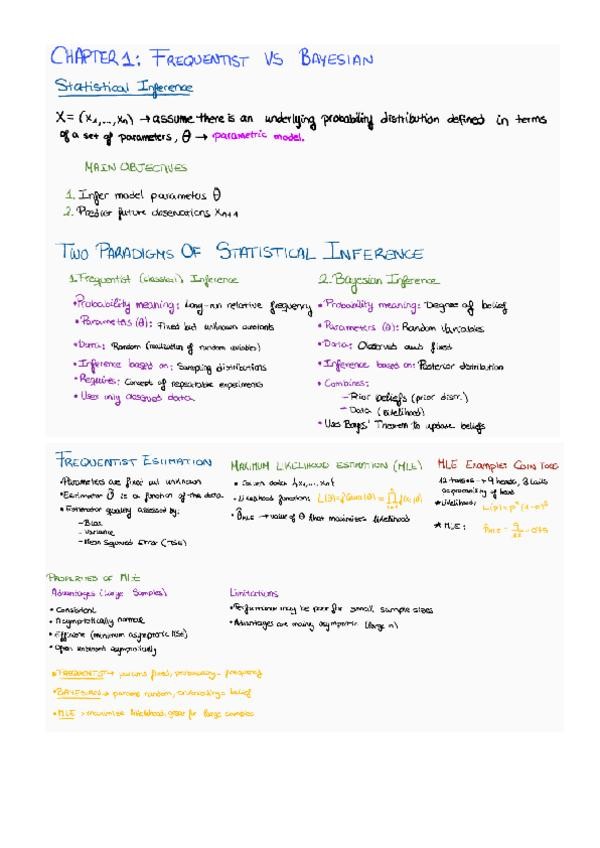 CHAPTER 1: FREQUENTIST VS BAYESIAN
Statistical Inference
X = (x₁,...,xₙ) → assume there is an underlying probability distribution defined in terms
of a set of parameters, θ → parametric model.
MAIN OBJECTIVES
1. Infer model parameters θ
2. Predict future observations xₙ₊₁
TWO PARADIGMS OF STATISTICAL INFERENCE
1. Frequentist (classical) Inference
• Probability meaning: Long-run relative frequency
• Parameters (θ): Fixed but unknown constants
• Data: Random (realization of random variables)
• Inference based on: Sampling distributions
• Requires: Concept of repeatable experiments
• Uses only observed data
2. Bayesian Inference
• Probability meaning: Degree of belief
• Parameters (θ): Random Variables
• Data: Observed and fixed
• Inference based on: Posterior distribution
• Combines:
– Prior beliefs (prior distr.)
– Data (likelihood)
• Uses Bayes' Theorem to update beliefs
FREQUENTIST ESTIMATION
• Parameters are fixed but unknown
• Estimator θ̂ is a function of the data
• Estimator quality assessed by:
– Bias
– Variance
– Mean Squared Error (MSE)
MAXIMUM LIKELIHOOD ESTIMATION (MLE)
• Given data {x₁,...,xₙ}
• Likelihood function:
• θ̂MLE → value of θ that maximizes likelihood
MLE Example: COIN TOSS
12 tosses → 9 heads, 3 tails
p = probability of head
• Likelihood:
• MLE: p̂MLE = 9/12 = 0.75
PROPERTIES OF MLE
Advantages (Large Samples)
• Consistent
• Asymptotically normal
• Efficient (minimum asymptotic MSE)
• Often unbiased asymptotically
Limitations
• Performance may be poor for small sample sizes
• Advantages are mainly asymptotic (large n)
• FREQUENTIST → params fixed, probability = frequency
• BAYESIAN → params random, probability = belief
• MLE → maximize likelihood, great for large samples